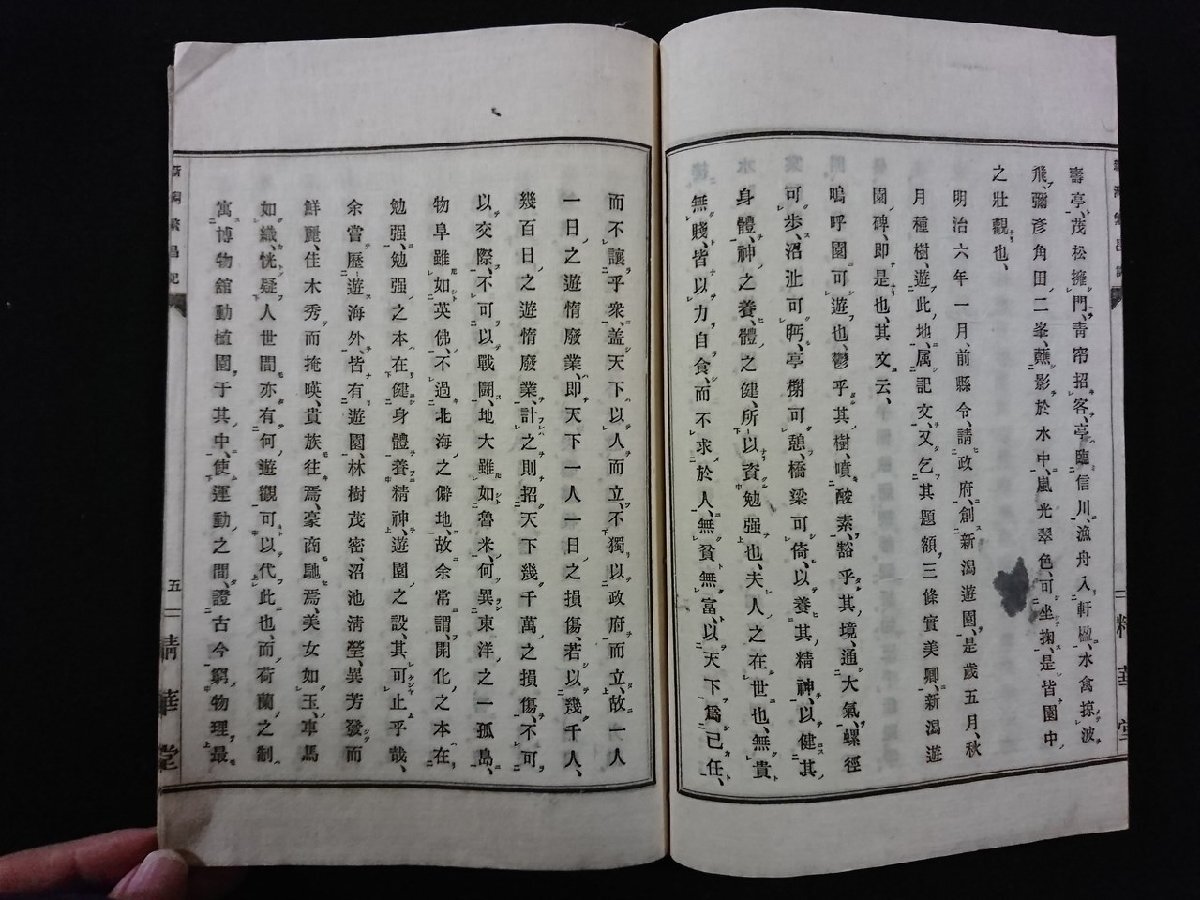 壽亭、茂松擁門、青帘招客、亭臨信川、漁舟入軒楹、水禽掠波
飛、彌彦角田二峯、蘸影於水中、嵐光翠色、可坐掬、是皆園中
之壯觀也、
明治六年一月、前縣令、請政府、創新潟遊園、是歲五月、秋
月種樹、遊此地、属記文、又乞其題額三條實美卿、新潟遊
園碑、即是也、其文云、
嗚呼園可遊也、鬱乎其樹、噴酸素、豁乎其境、通大氣、螺徑
可歩、沼沚可眄、亭榭可憩、橋梁可倚、以養其精神、以健其
身體、神之養、體之健、所以資勉强也、夫人之在世也、無貴
無賤、皆以力自食、而不求於人、無貧無富、以天下爲己任、
而不讓乎衆、盖天下以人而立、不獨以政府而立、故一人
一日之遊惰廢業、即天下一人一日之損傷、若以幾千人、
幾百日之遊惰廢業、計之則招天下幾千萬之損傷、不可
以交際、不可以戰鬪、地大雖如魯米、何異東洋之一孤島、
物阜雖如英佛、不過北海之僻地、故余常謂、開化之本在
勉强、勉强之本在健身體養精神、遊園之設、其可止乎哉、
余嘗歷遊海外、皆有遊園、林樹茂密、沼池清瑩、異芳發而
鮮麗、佳木秀而掩暎、貴族往焉、豪商馳焉、美女如玉、車馬
如織、恍疑人世間亦有何遊觀可以代此也、而荷蘭之制
寓博物舘動植園于其中、使運動之間、證古今窮物理最
新潟繁昌記
五
精華堂